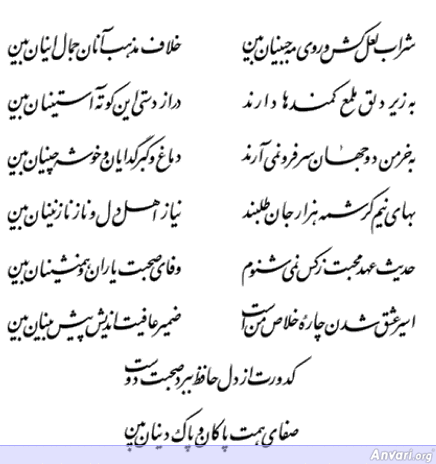 شراب لعل کش و روی مه جبینان بین خلاف مذهب آنان جمال اینان بین
به زیر دلق ملمع کمندها دارند دراز دستی این کوته آستینان بین
به خرمن دو جهان سر فرو نمی آرند دماغ و کبر گدایان و خوشه چینان بین
بهای نیم کرشمه هزار جان طلبند نیاز اهل دل و ناز نازنینان بین
حدیث عهد محبت ز کس نمی شنوم وفای صحبت یاران و همنشینان بین
اسیر عشق شدن چاره خلاص من است ضمیر عافیت اندیش پیش بینان بین
کدورت از دل حافظ ببرد صحبت دوست
صفای همت پاکان و پاک دینان بین
Anvari.org